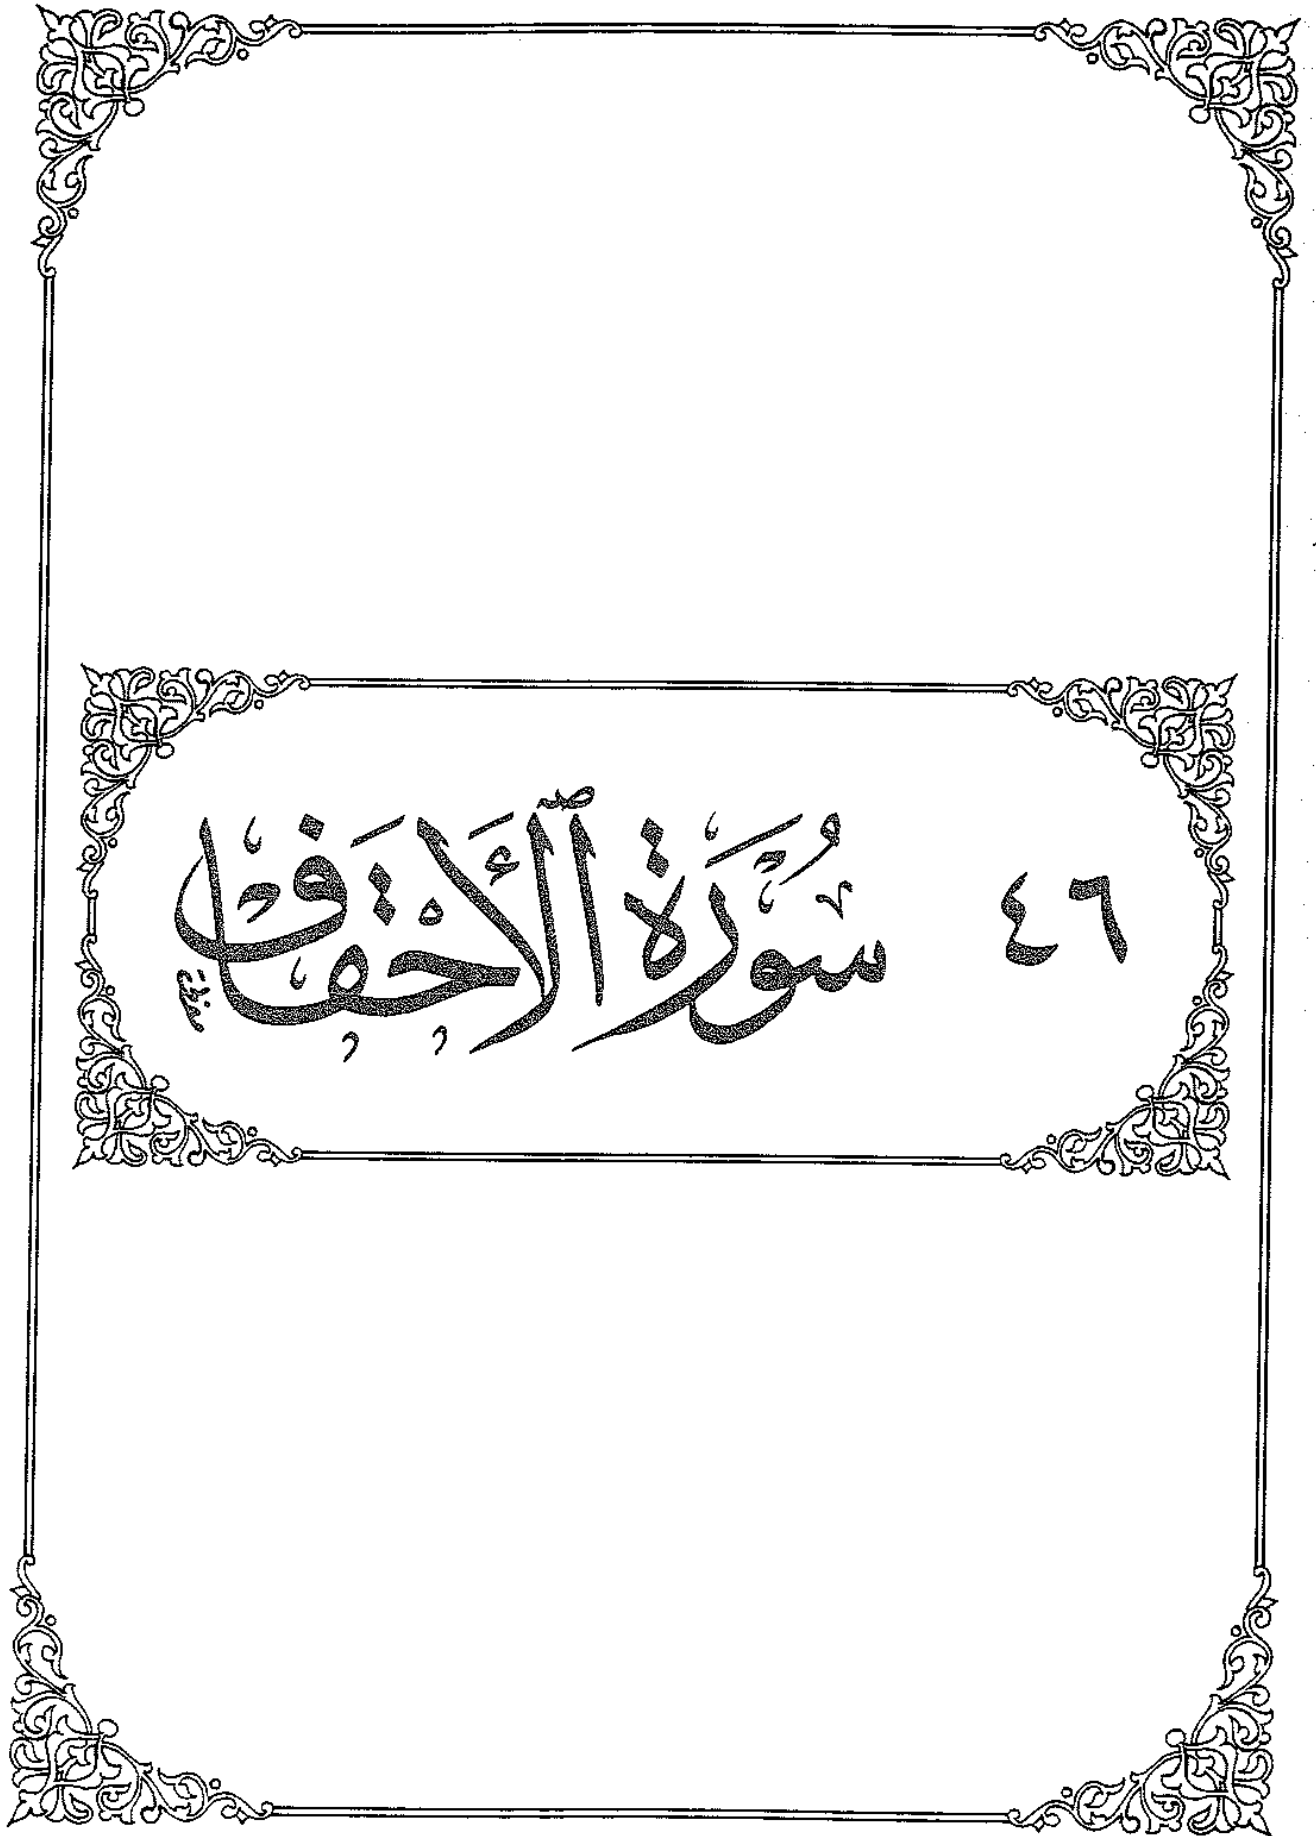 ٤٦ سُورَةُ ٱلْأَحْقَافِ